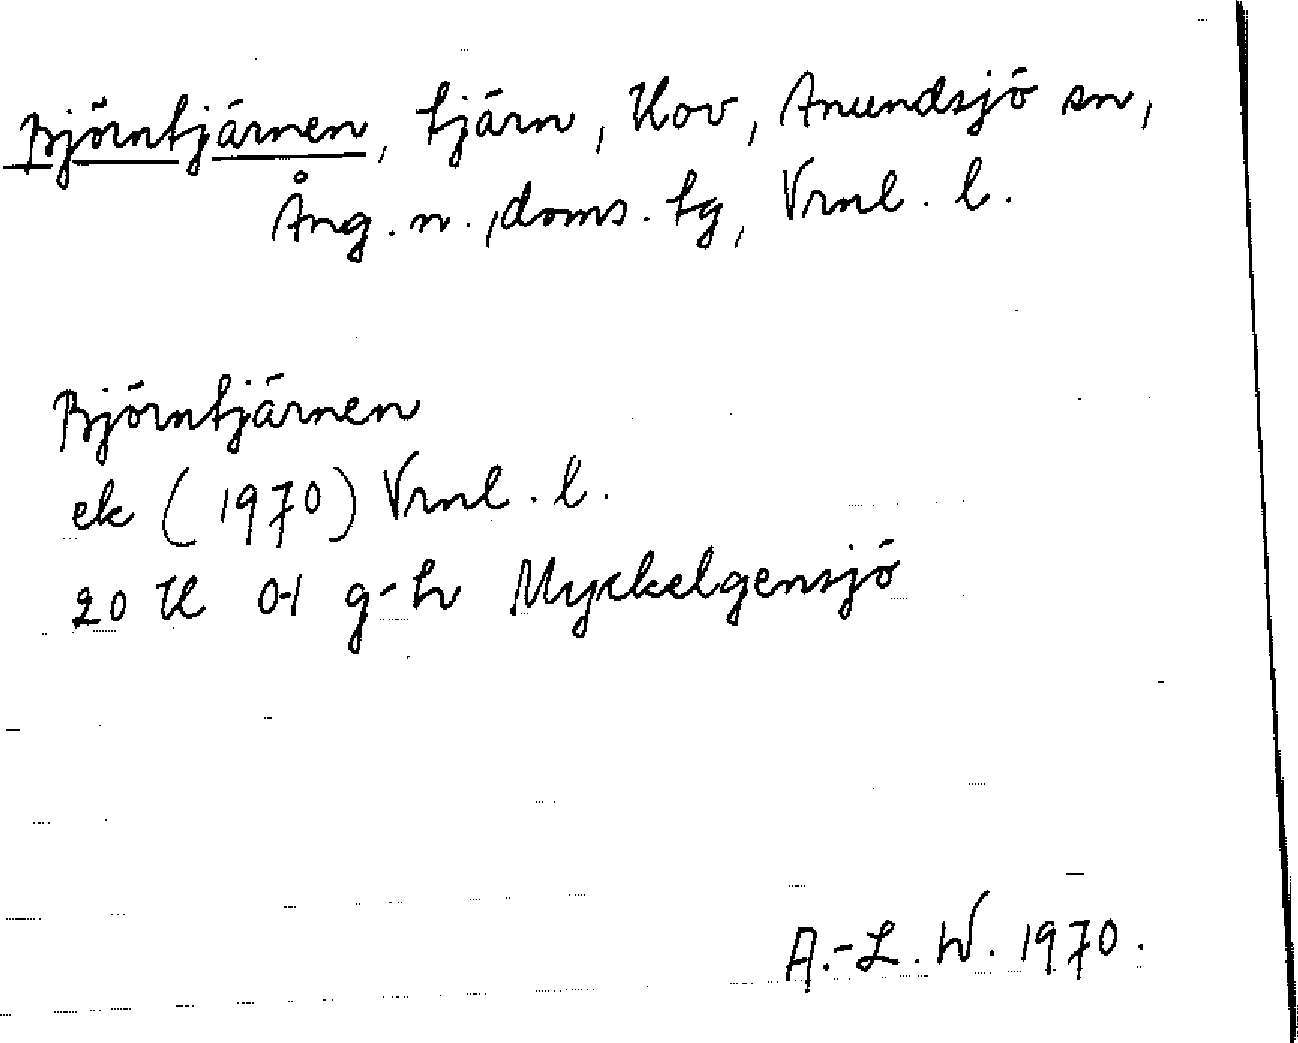 Björntjärnen, tjärn, Hov, Anundsjö sn,
Ång. n., doms. tg, Vrnl. l.
Björntjärnen
ek (1970) Vrnl. l.
20 H 01 g-h Myckelgensjö
A.-L. W. 1970.